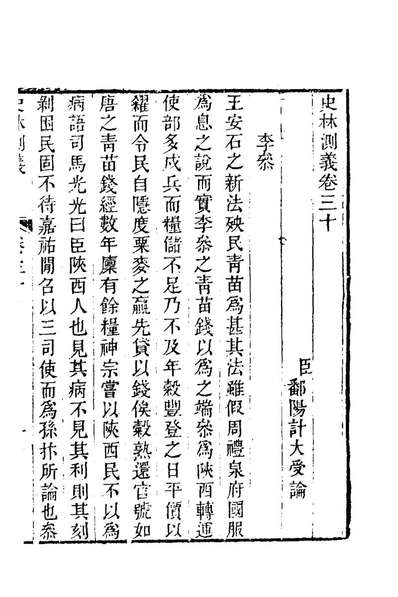 史林測義卷三十
臣鄱陽計大受論
李叅
王安石之新法殃民靑苗爲甚其法雖假周禮泉府國服
爲息之說而實李叅之靑苗錢以爲之端叅爲陝西轉運
使部多戍兵而糧儲不足乃不及年穀豐登之日平價以
糴而令民自隱度粟麥之贏先貸以錢俟穀熟還官號如
唐之靑苗錢經數年廩有餘糧神宗嘗以陝西民不以爲
病語司馬光光曰臣陝西人也見其病不見其利則其刻
剝困民固不待嘉祐閒召以三司使而爲孫抃所論也叅
史林測義
卷三十
一